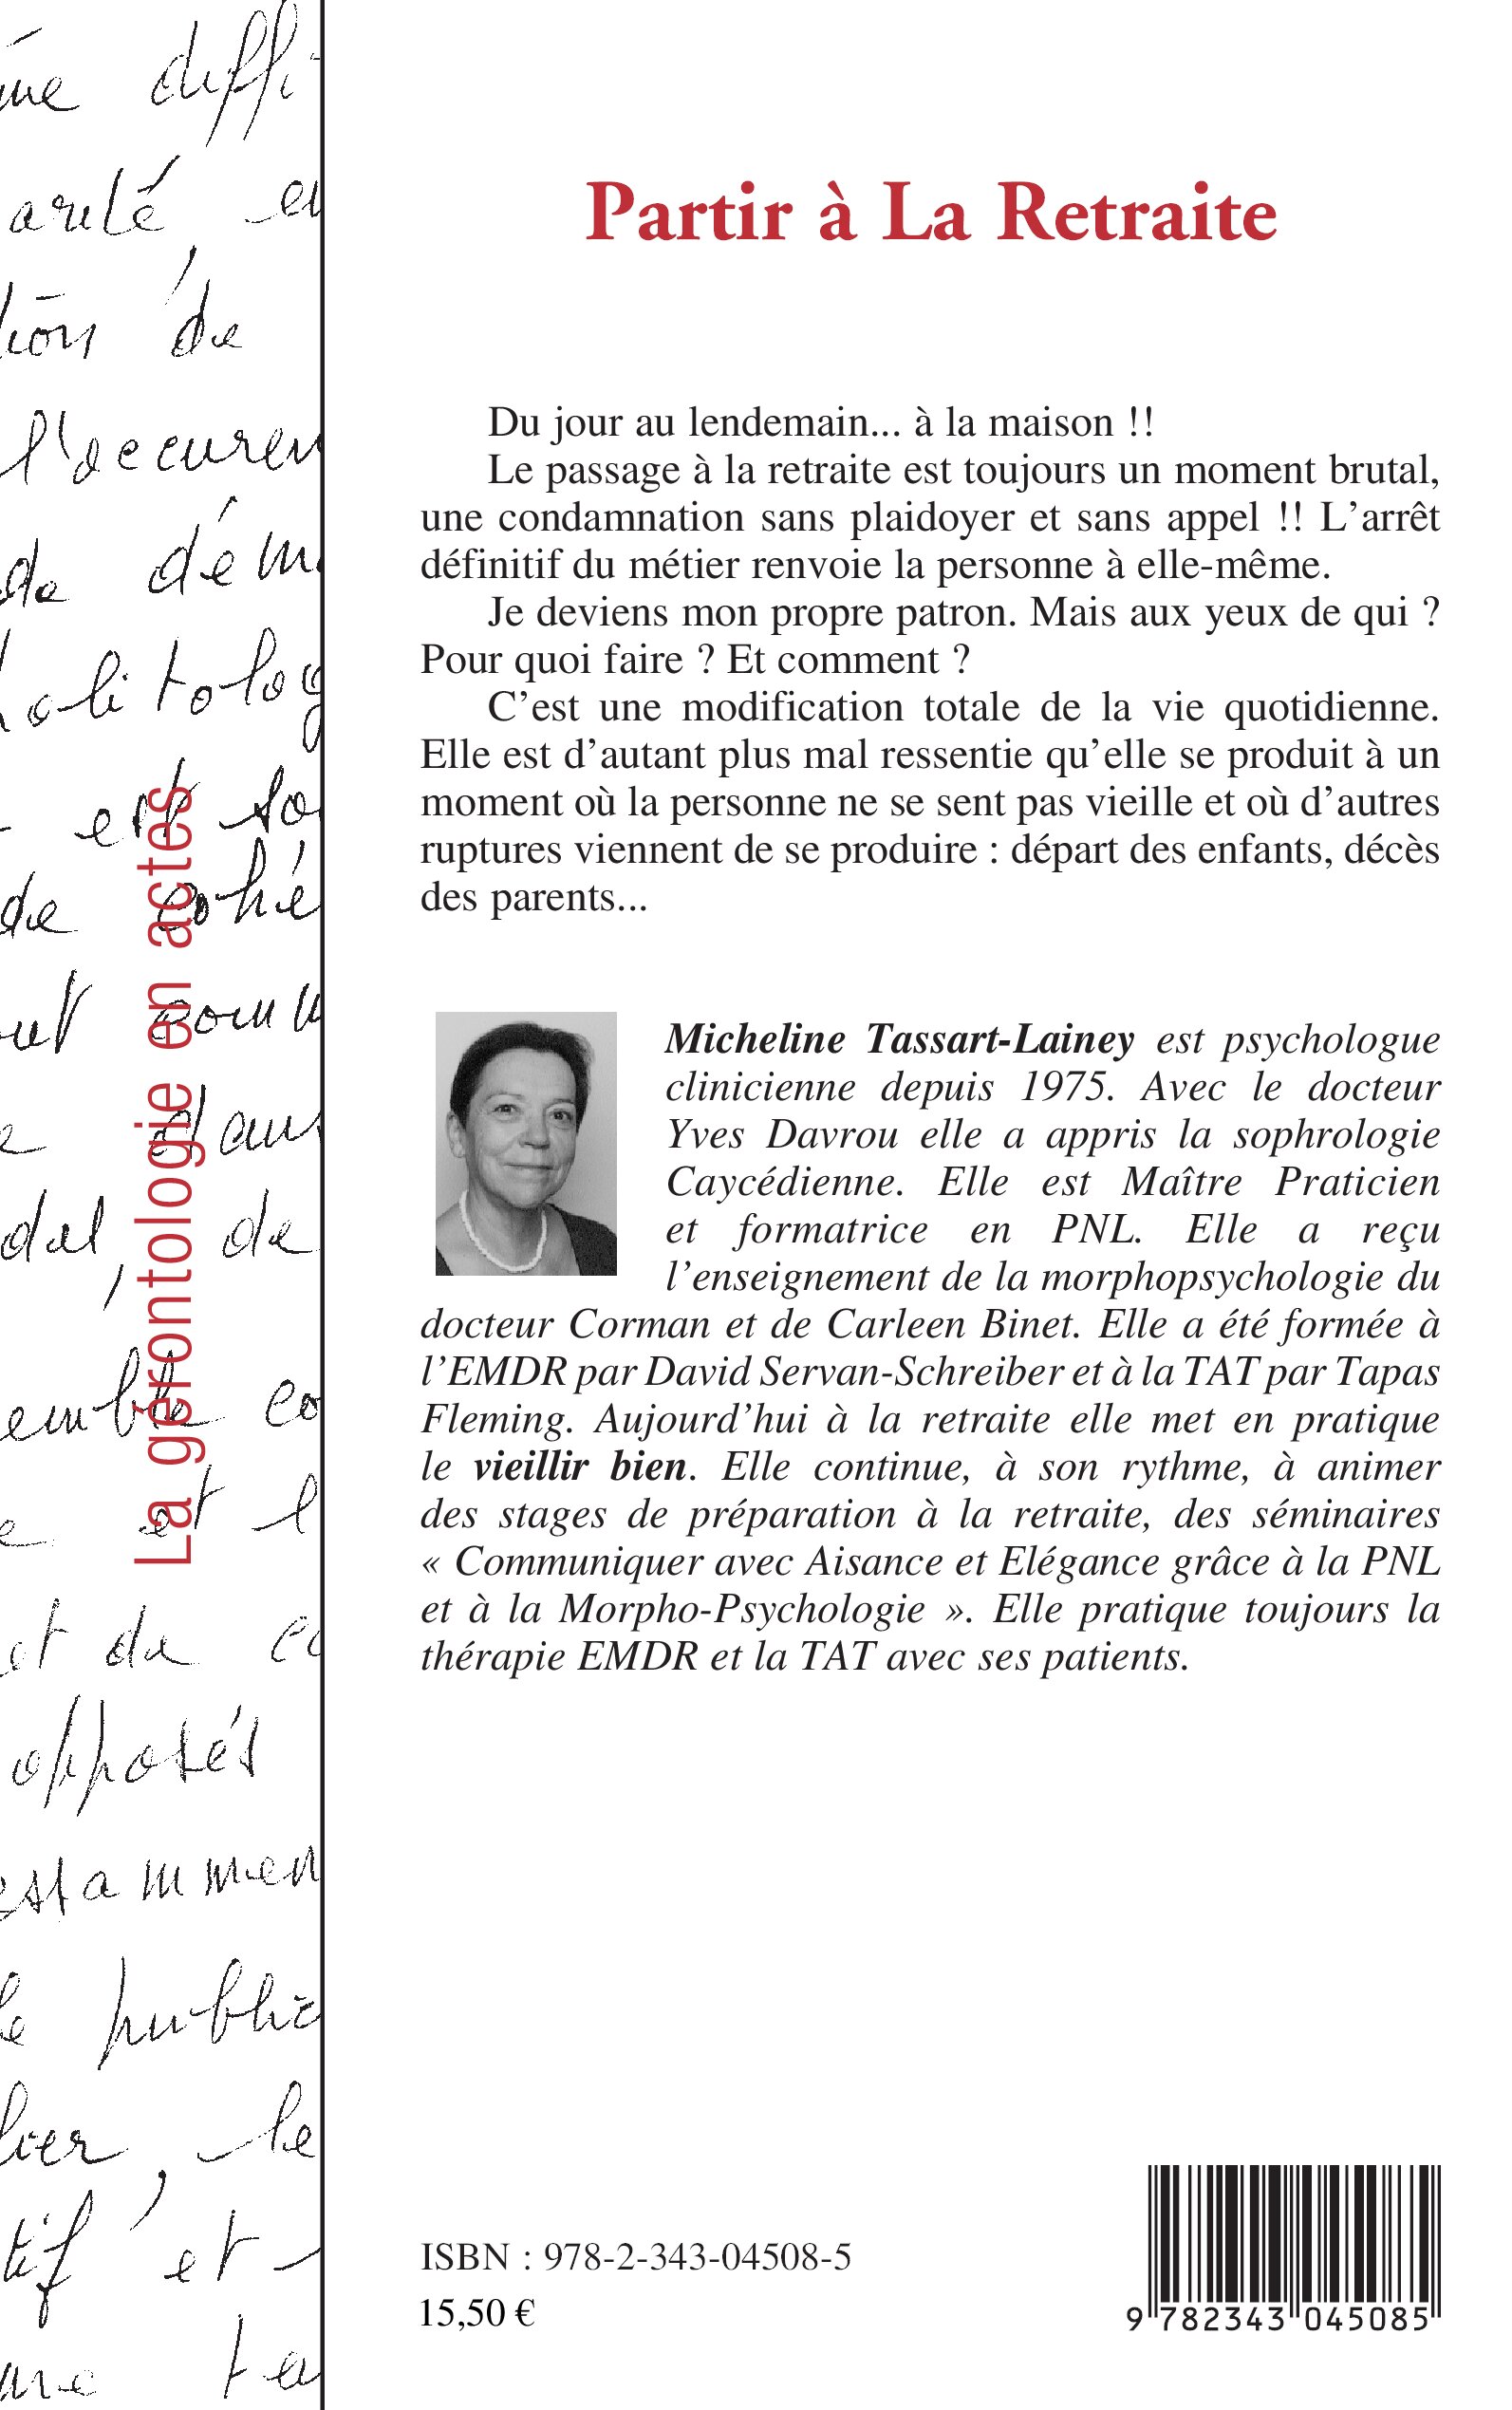 Partir à La Retraite
Du jour au lendemain... à la maison !!
Le passage à la retraite est toujours un moment brutal,
une condamnation sans plaidoyer et sans appel !! L’arrêt
définitif du métier renvoie la personne à elle-même.
Je deviens mon propre patron. Mais aux yeux de qui ?
Pour quoi faire ? Et comment ?
C’est une modification totale de la vie quotidienne.
Elle est d’autant plus mal ressentie qu’elle se produit à un
moment où la personne ne se sent pas vieille et où d’autres
ruptures viennent de se produire : départ des enfants, décès
des parents...
Micheline Tassart-Lainey est psychologue
clinicienne depuis 1975. Avec le docteur
Yves Davrou elle a appris la sophrologie
Caycédienne. Elle est Maître Praticien
et formatrice en PNL. Elle a reçu
l’enseignement de la morphopsychologie du
docteur Corman et de Carleen Binet. Elle a été formée à
l’EMDR par David Servan-Schreiber et à la TAT par Tapas
Fleming. Aujourd’hui à la retraite elle met en pratique
le vieillir bien. Elle continue, à son rythme, à animer
des stages de préparation à la retraite, des séminaires
« Communiquer avec Aisance et Elégance grâce à la PNL
et à la Morpho-Psychologie ». Elle pratique toujours la
thérapie EMDR et la TAT avec ses patients.
ISBN : 978-2-343-04508-5
15,50 €
9 782343 045085
La gérontologie en actes
diffi
arité, en
de
l'occuren
de dém
est so
de cohé
comm
dans
de
emble co
et l
et de co
opposés
public
le
et